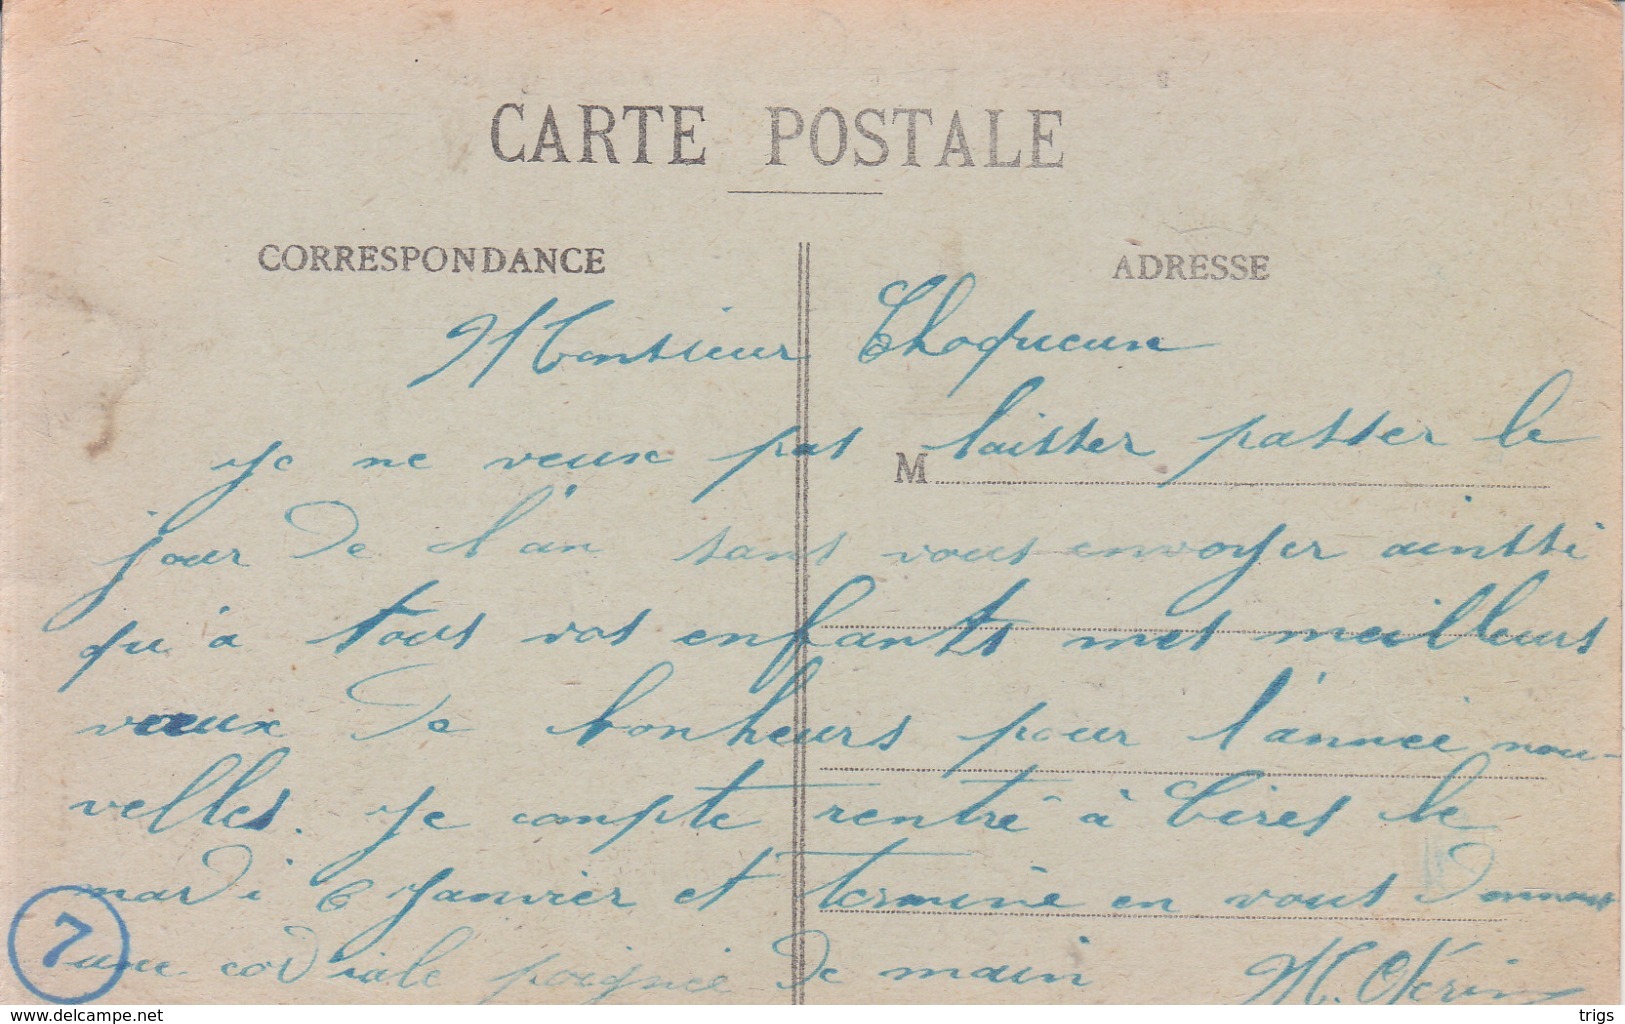 CARTE POSTALE
CORRESPONDANCE
ADRESSE
Monsieur Choqueux
M
Je ne veux pas laisser passer le
jour de l'an sans vous envoyer ainssi
qu'a tous vos enfants mes meilleurs
vœux de bonheurs pour l'année nou-
velles. Je compte rentré à Cires le
mardi 6 Janvier et terminé en vous donnant
7
une cordiale poignée de main M.
© delcampe.net
trigs